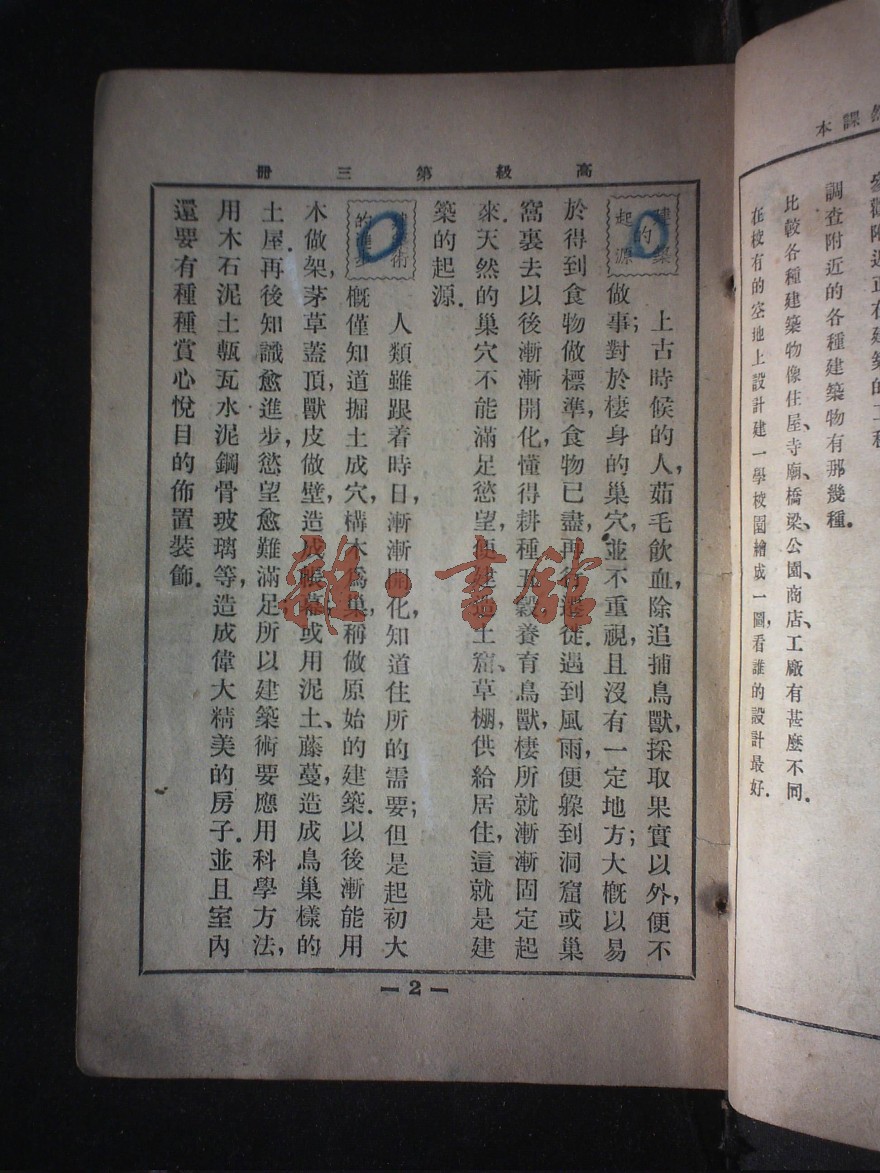 然課本
調查附近的各種建築物有那幾種.
比較各種建築物像住屋、寺廟、橋梁、公園、商店、工廠有甚麼不同.
在校有的空地上設計建一學校園繪成一圖,看誰的設計最好.
高級第三冊
建築的起源
上古時候的人,茹毛飲血,除追捕鳥獸,採取果實以外,便不
做事;對於棲身的巢穴,並不重視,且沒有一定地方;大概以易
於得到食物做標準,食物已盡,再行遷徙.遇到風雨,便躲到洞窟或巢
窩裏去以後漸漸開化,懂得耕種五穀,養育鳥獸,棲所就漸漸固定起
來.天然的巢穴不能滿足慾望,便建造土窟、草棚,供給居住,這就是建
築的起源.
建築術的進步
人類雖跟着時日,漸漸開化,知道住所的需要;但是起初大
概僅知道掘土成穴,構木爲巢,稱做原始的建築.以後漸能用
木做架,茅草蓋頂,獸皮做壁,造成帳幕,或用泥土、藤蔓,造成鳥巢樣的
土屋.再後知識愈進步,慾望愈難滿足,所以建築術要應用科學方法,
用木石泥土甎瓦水泥鋼骨玻璃等,造成偉大精美的房子.並且室內
還要有種種賞心悅目的佈置裝飾.
2
雜·書館